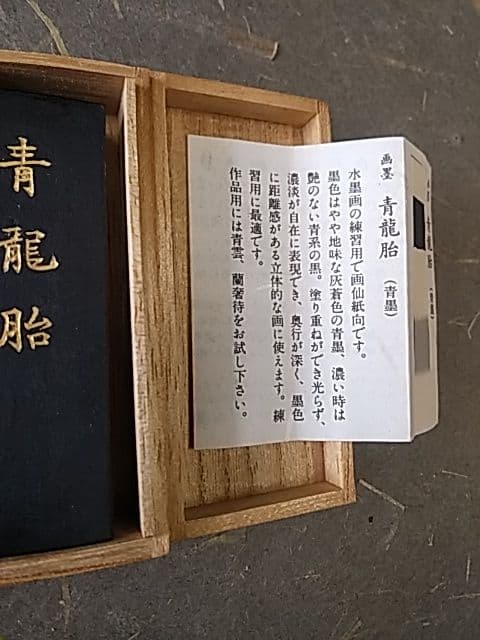 画墨 青龍胎（青墨）
水墨画の練習用で画仙紙向です。
墨色はやや地味な灰蒼色の青墨、濃い時は
艶のない青系の黒。塗り重ねができ光らず、
濃淡が自在に表現でき、奥行が深く、墨色
に距離感がある立体的な画に使えます。練
習用に最適です。
作品用には青雲、蘭奢待をお試し下さい。
青龍胎
青龍胎（青墨）